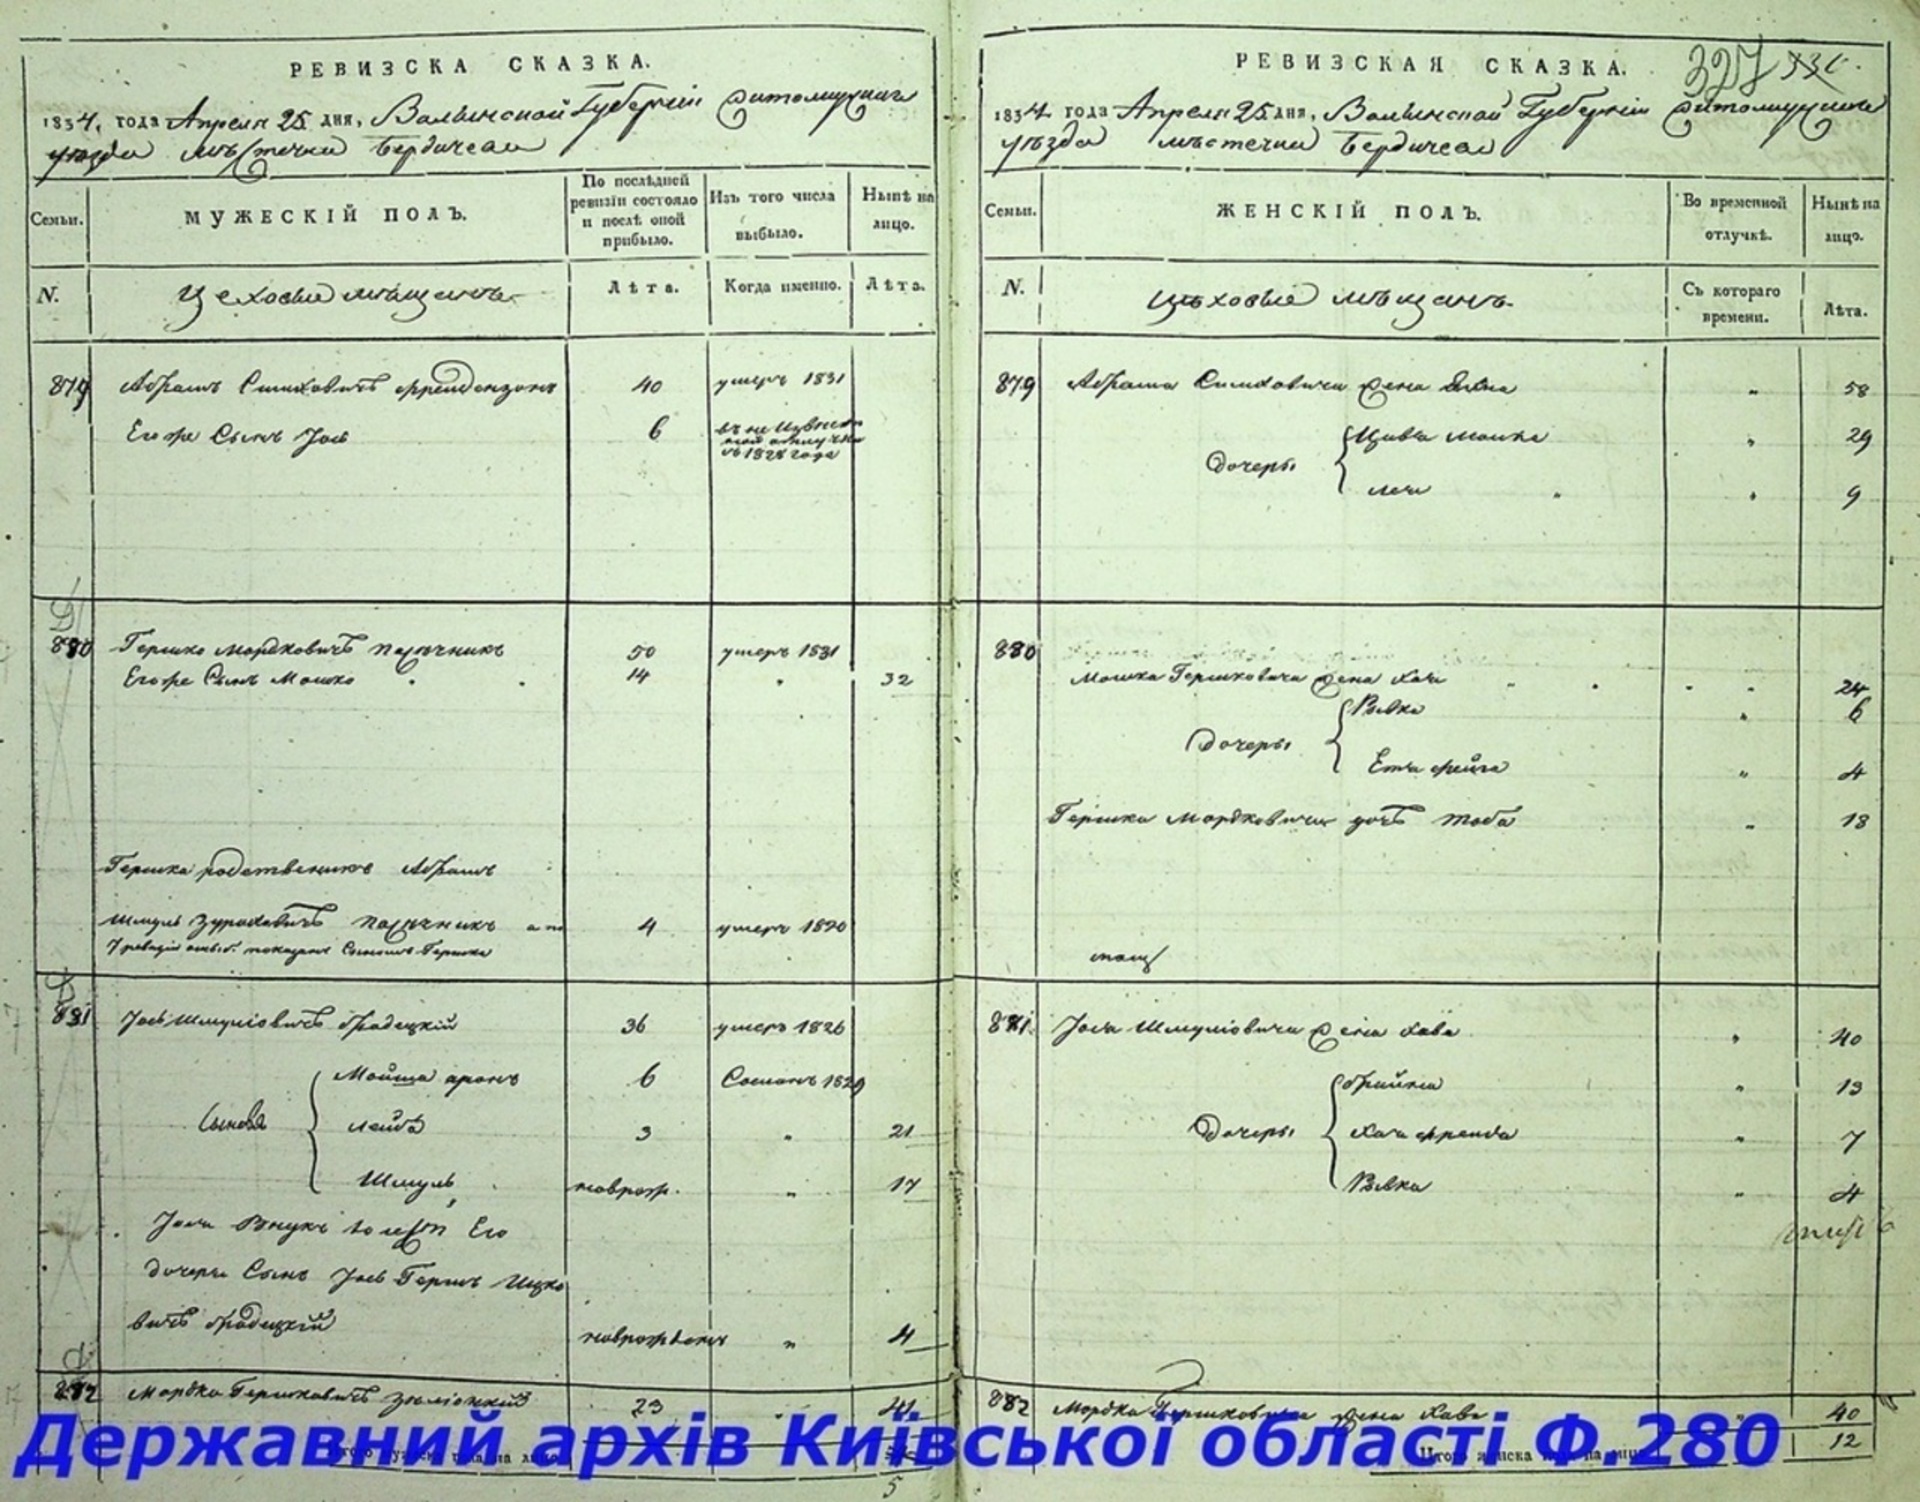 РЕВИЗСКА СКАЗКА.
1834, года Апреля 25 дня, Волынской Губерніи Житомирскаго
уезда мѣстечка Бердичева
Семьи.
МУЖЕСКІЙ ПОЛЪ.
По послѣдней
ревизіи состояло
и послѣ оной
прибыло.
Изъ того числа
выбыло.
Нынѣ на
лицо.
N.
Цеховые мѣщанъ
Лѣта.
Когда именно.
Лѣта.
879 Абрамъ Симховичъ Френдензонъ 40 умеръ 1831
Егоже Сынъ Іось 6 въ неизвѣстн
ной отлучке
съ 1828 года
880 Гершко Мордковичъ Пасѣчникъ 50 умеръ 1831
Егоже Сынъ Мошко 14 " 32
Гершка родственикъ Абрамъ
Шмуль Зураховичъ Пасѣчникъ а по 4 умеръ 1820
7 ревизіи показанъ Сыномъ Гершка
881 Іось Шмуліовичъ Бродецкій 36 умеръ 1826
Сыновя
Мойша аронъ 6 1829
Лейба 3 " 21
Шмуль новрож. " 17
Іося Внукъ то есть Его
дочери Сынъ Іось Гершъ Ицко
вичъ Бродецкій новрожденъ " 4
882 Мордко Гершковичъ 23 " 41
Итого мужеска пола на лицо
5
РЕВИЗСКАЯ СКАЗКА.
327
1834 года Апреля 25 дня, Волынской Губерніи Житомирскаго
уѣзда мѣстечка Бердичева
Семьи.
ЖЕНСКІЙ ПОЛЪ.
Во временной
отлучкѣ.
Нынѣ на
лицо.
N.
Цѣховые мѣщанъ.
Съ котораго
времени.
Лѣта.
879 Абрама Симховича жена " 58
Дочеры
Цивья Мошка " 29
Лея " 9
880
Мошка Гершковича жена Хая " 24
Дочеры
Рывка " 6
Етя фейга " 4
Гершка Мордковича дочь Тоба " 13
881 Іося Шмуліовича жена Хава " 40
Дочеры
Брайна " 13
Хая френда " 7
Рывка " 4
882 Мордка Гершковича жена Хава " 40
Итого женска пола на лицо 12
Державний архів Київської області Ф.280